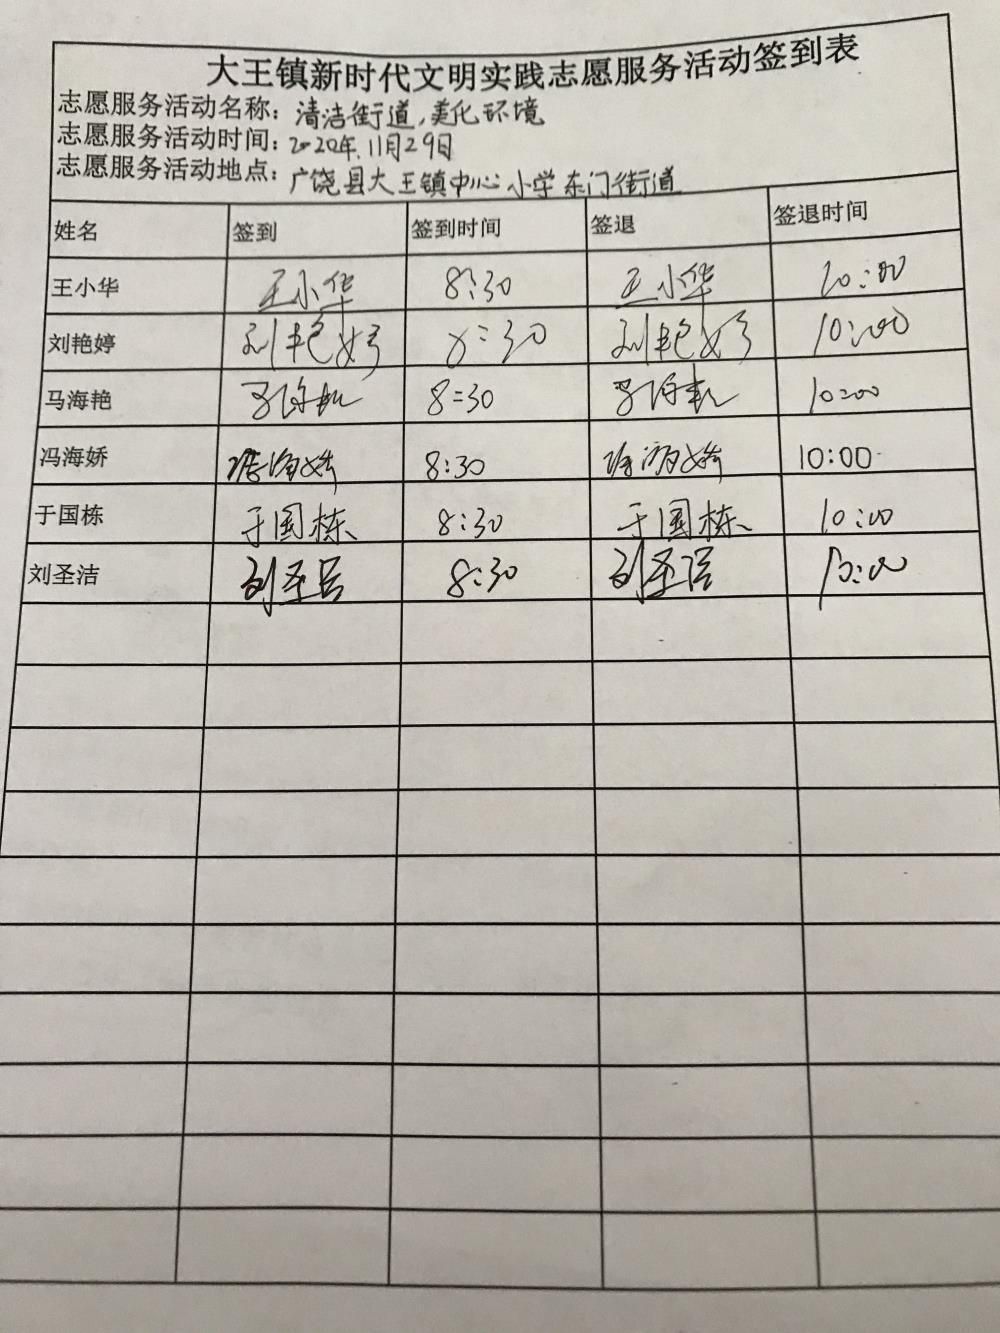 大王镇新时代文明实践志愿服务活动签到表
志愿服务活动名称：清洁街道，美化环境
志愿服务活动时间：2020年11月29日
志愿服务活动地点：广饶县大王镇中心小学东门街道
姓名 签到 签到时间 签退 签退时间
王小华 王小华 8:30 王小华 10:00
刘艳婷 刘艳婷 8:30 刘艳婷 10:00
马海艳 马海艳 8:30 马海艳 10:00
冯海娇 冯海娇 8:30 冯海娇 10:00
于国栋 于国栋 8:30 于国栋 10:00
刘圣洁 刘圣洁 8:30 刘圣洁 10:00